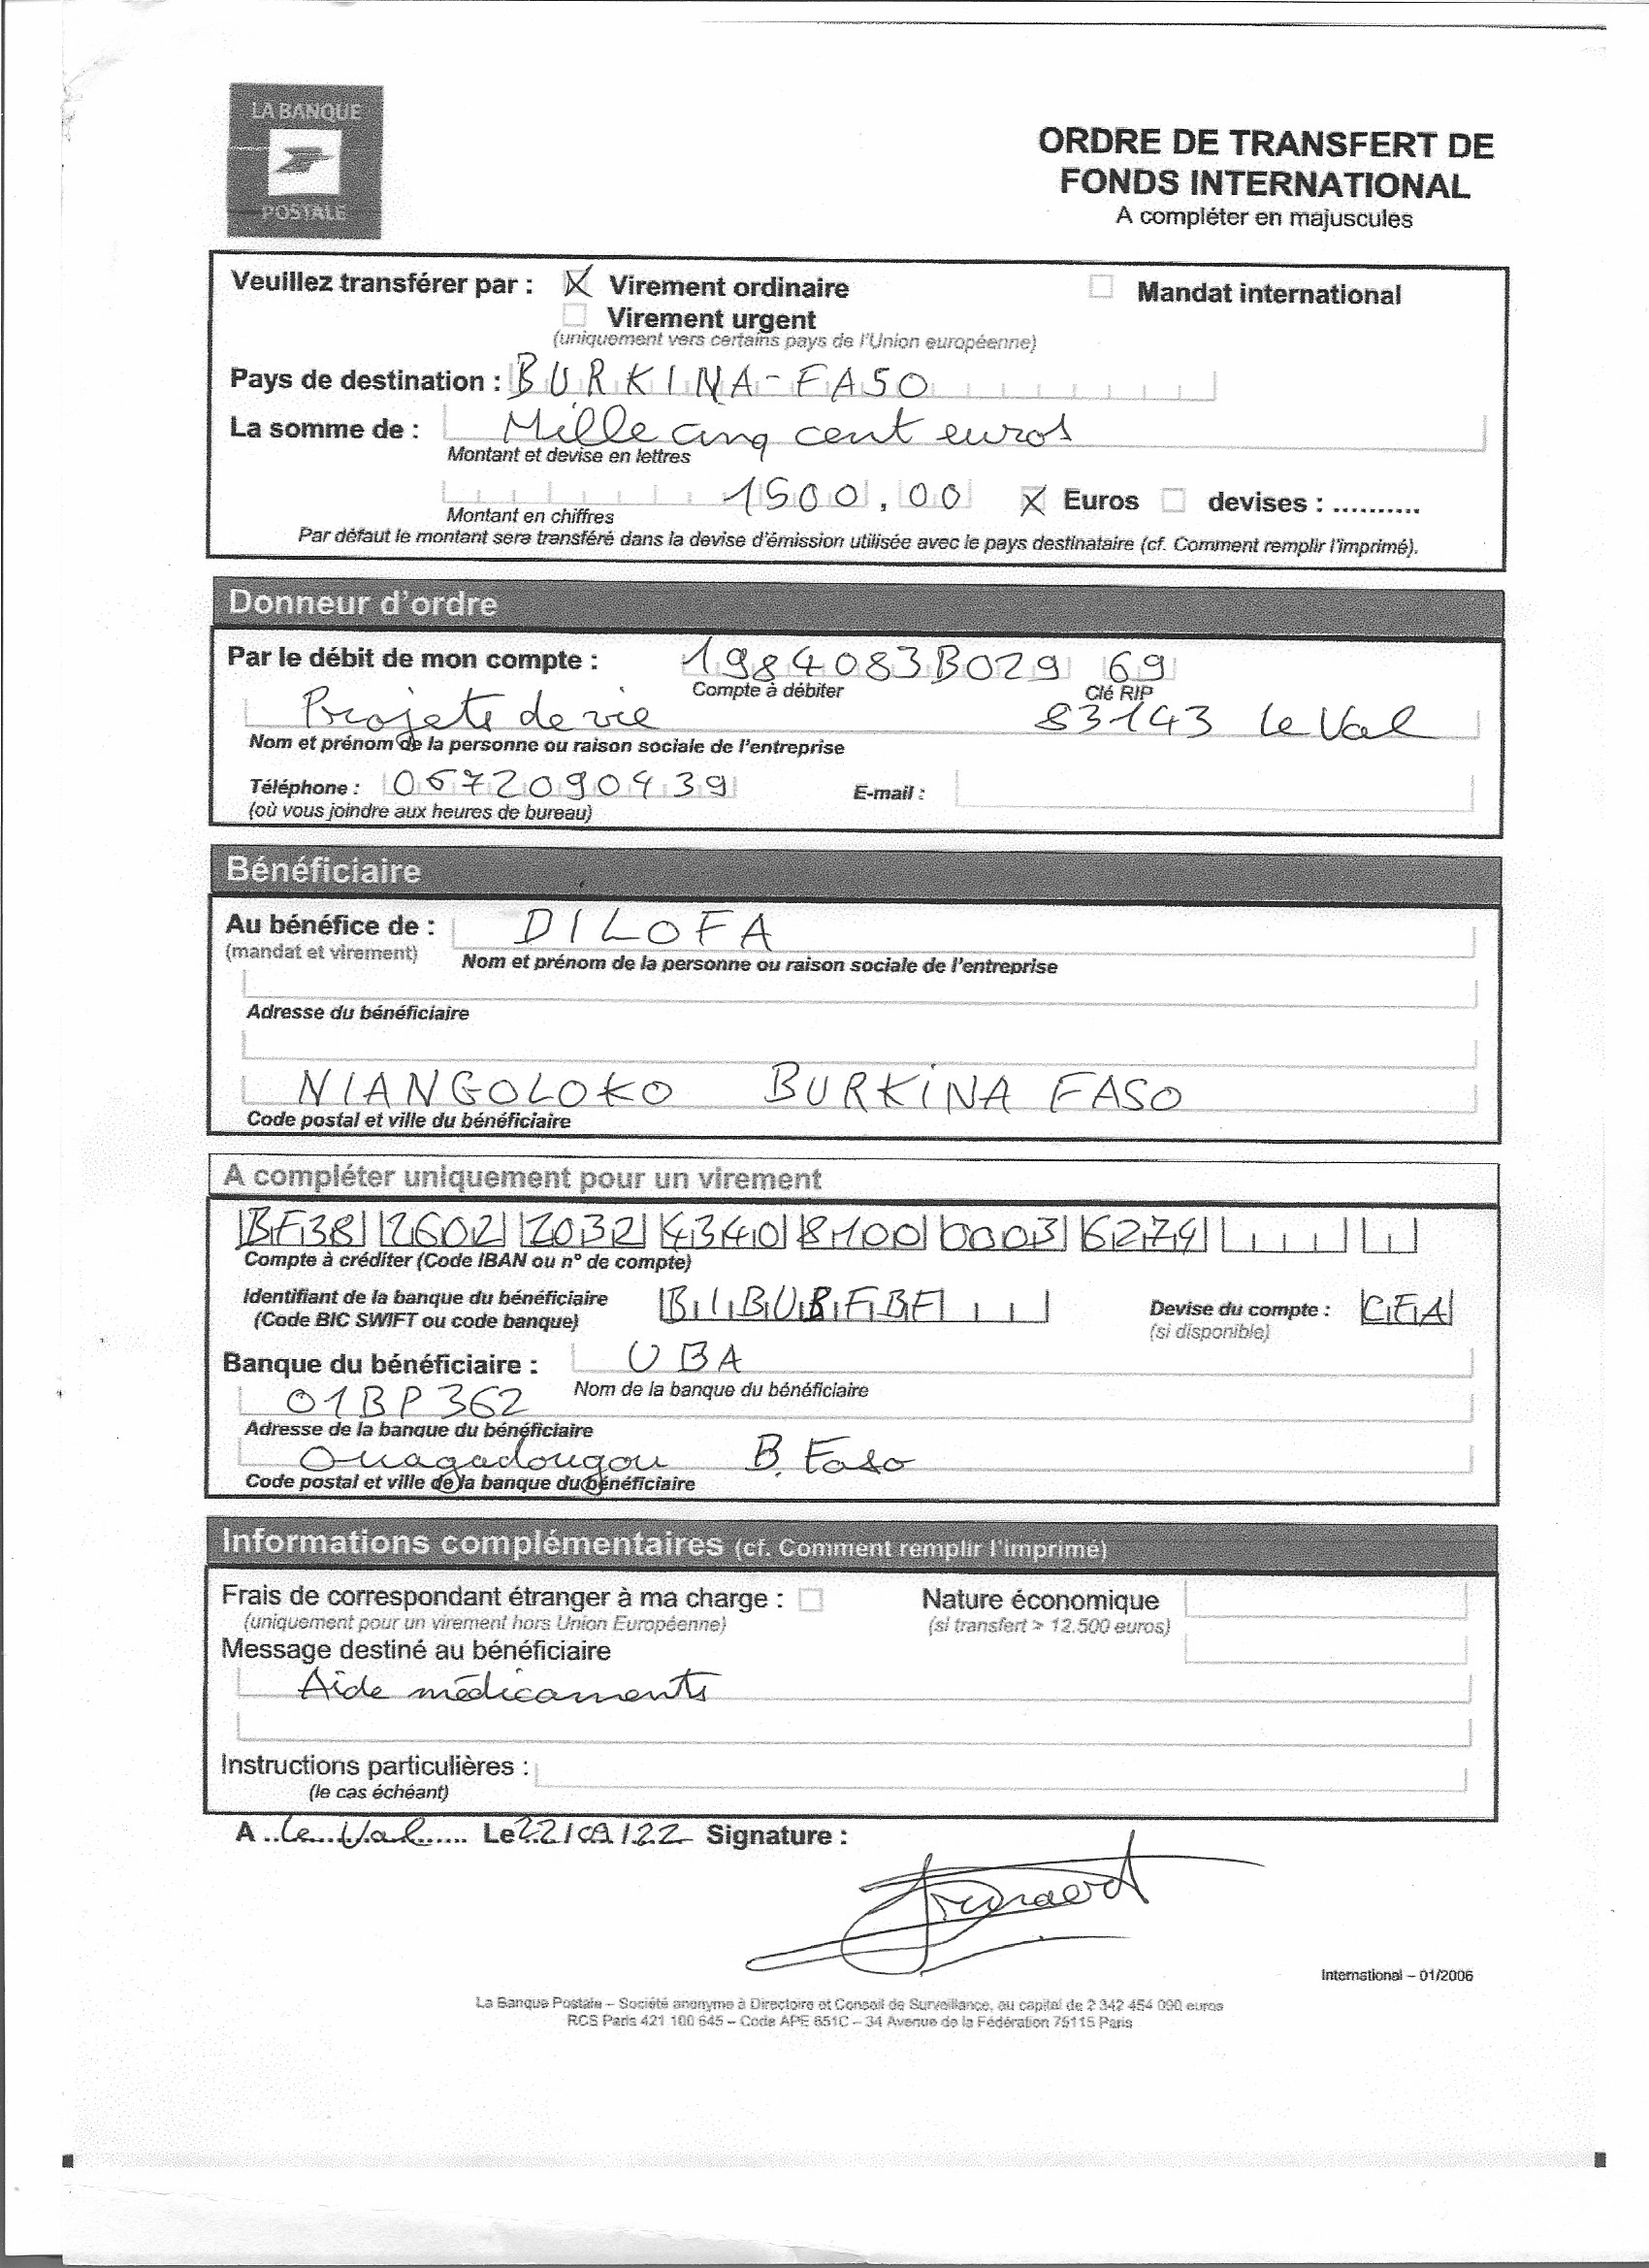 LA BANQUE
POSTALE
ORDRE DE TRANSFERT DE
FONDS INTERNATIONAL
A compléter en majuscules
Veuillez transférer par : X Virement ordinaire Mandat international
Virement urgent
(uniquement vers certains pays de l'Union européenne)
Pays de destination : BURKINA-FASO
La somme de : Mille cinq cent euros
Montant et devise en lettres
1500,00 X Euros devises : ..........
Montant en chiffres
Par défaut le montant sera transféré dans la devise d'émission utilisée avec le pays destinataire (cf. Comment remplir l'imprimé).
Donneur d'ordre
Par le débit de mon compte : 1984083B029 69
Compte à débiter Clé RIP
Projets de vie 83143 le Val
Nom et prénom de la personne ou raison sociale de l'entreprise
Téléphone : 0672090439 E-mail :
(où vous joindre aux heures de bureau)
Bénéficiaire
Au bénéfice de : DILOFA
(mandat et virement) Nom et prénom de la personne ou raison sociale de l'entreprise
Adresse du bénéficiaire
NIANGOLOKO BURKINA FASO
Code postal et ville du bénéficiaire
A compléter uniquement pour un virement
BF38 2602 2032 4340 8100 0003 6274
Compte à créditer (Code IBAN ou n° de compte)
Identifiant de la banque du bénéficiaire BIBURFBF Devise du compte : CFA
(Code BIC SWIFT ou code banque) (si disponible)
Banque du bénéficiaire : UBA
Nom de la banque du bénéficiaire
01BP 362
Adresse de la banque du bénéficiaire
Ouagadougou B. Faso
Code postal et ville de la banque du bénéficiaire
Informations complémentaires (cf. Comment remplir l'imprimé)
Frais de correspondant étranger à ma charge : Nature économique
(uniquement pour un virement hors Union Européenne) (si transfert > 12.500 euros)
Message destiné au bénéficiaire
Aide médicaments
Instructions particulières :
(le cas échéant)
A ..le Val..... Le 22/09/22 Signature :
International – 01/2006
La Banque Postale – Société anonyme à Directoire et Conseil de Surveillance, au capital de 2 342 454 090 euros
RCS Paris 421 100 645 – Code APE 651C – 34 Avenue de la Fédération 75115 Paris